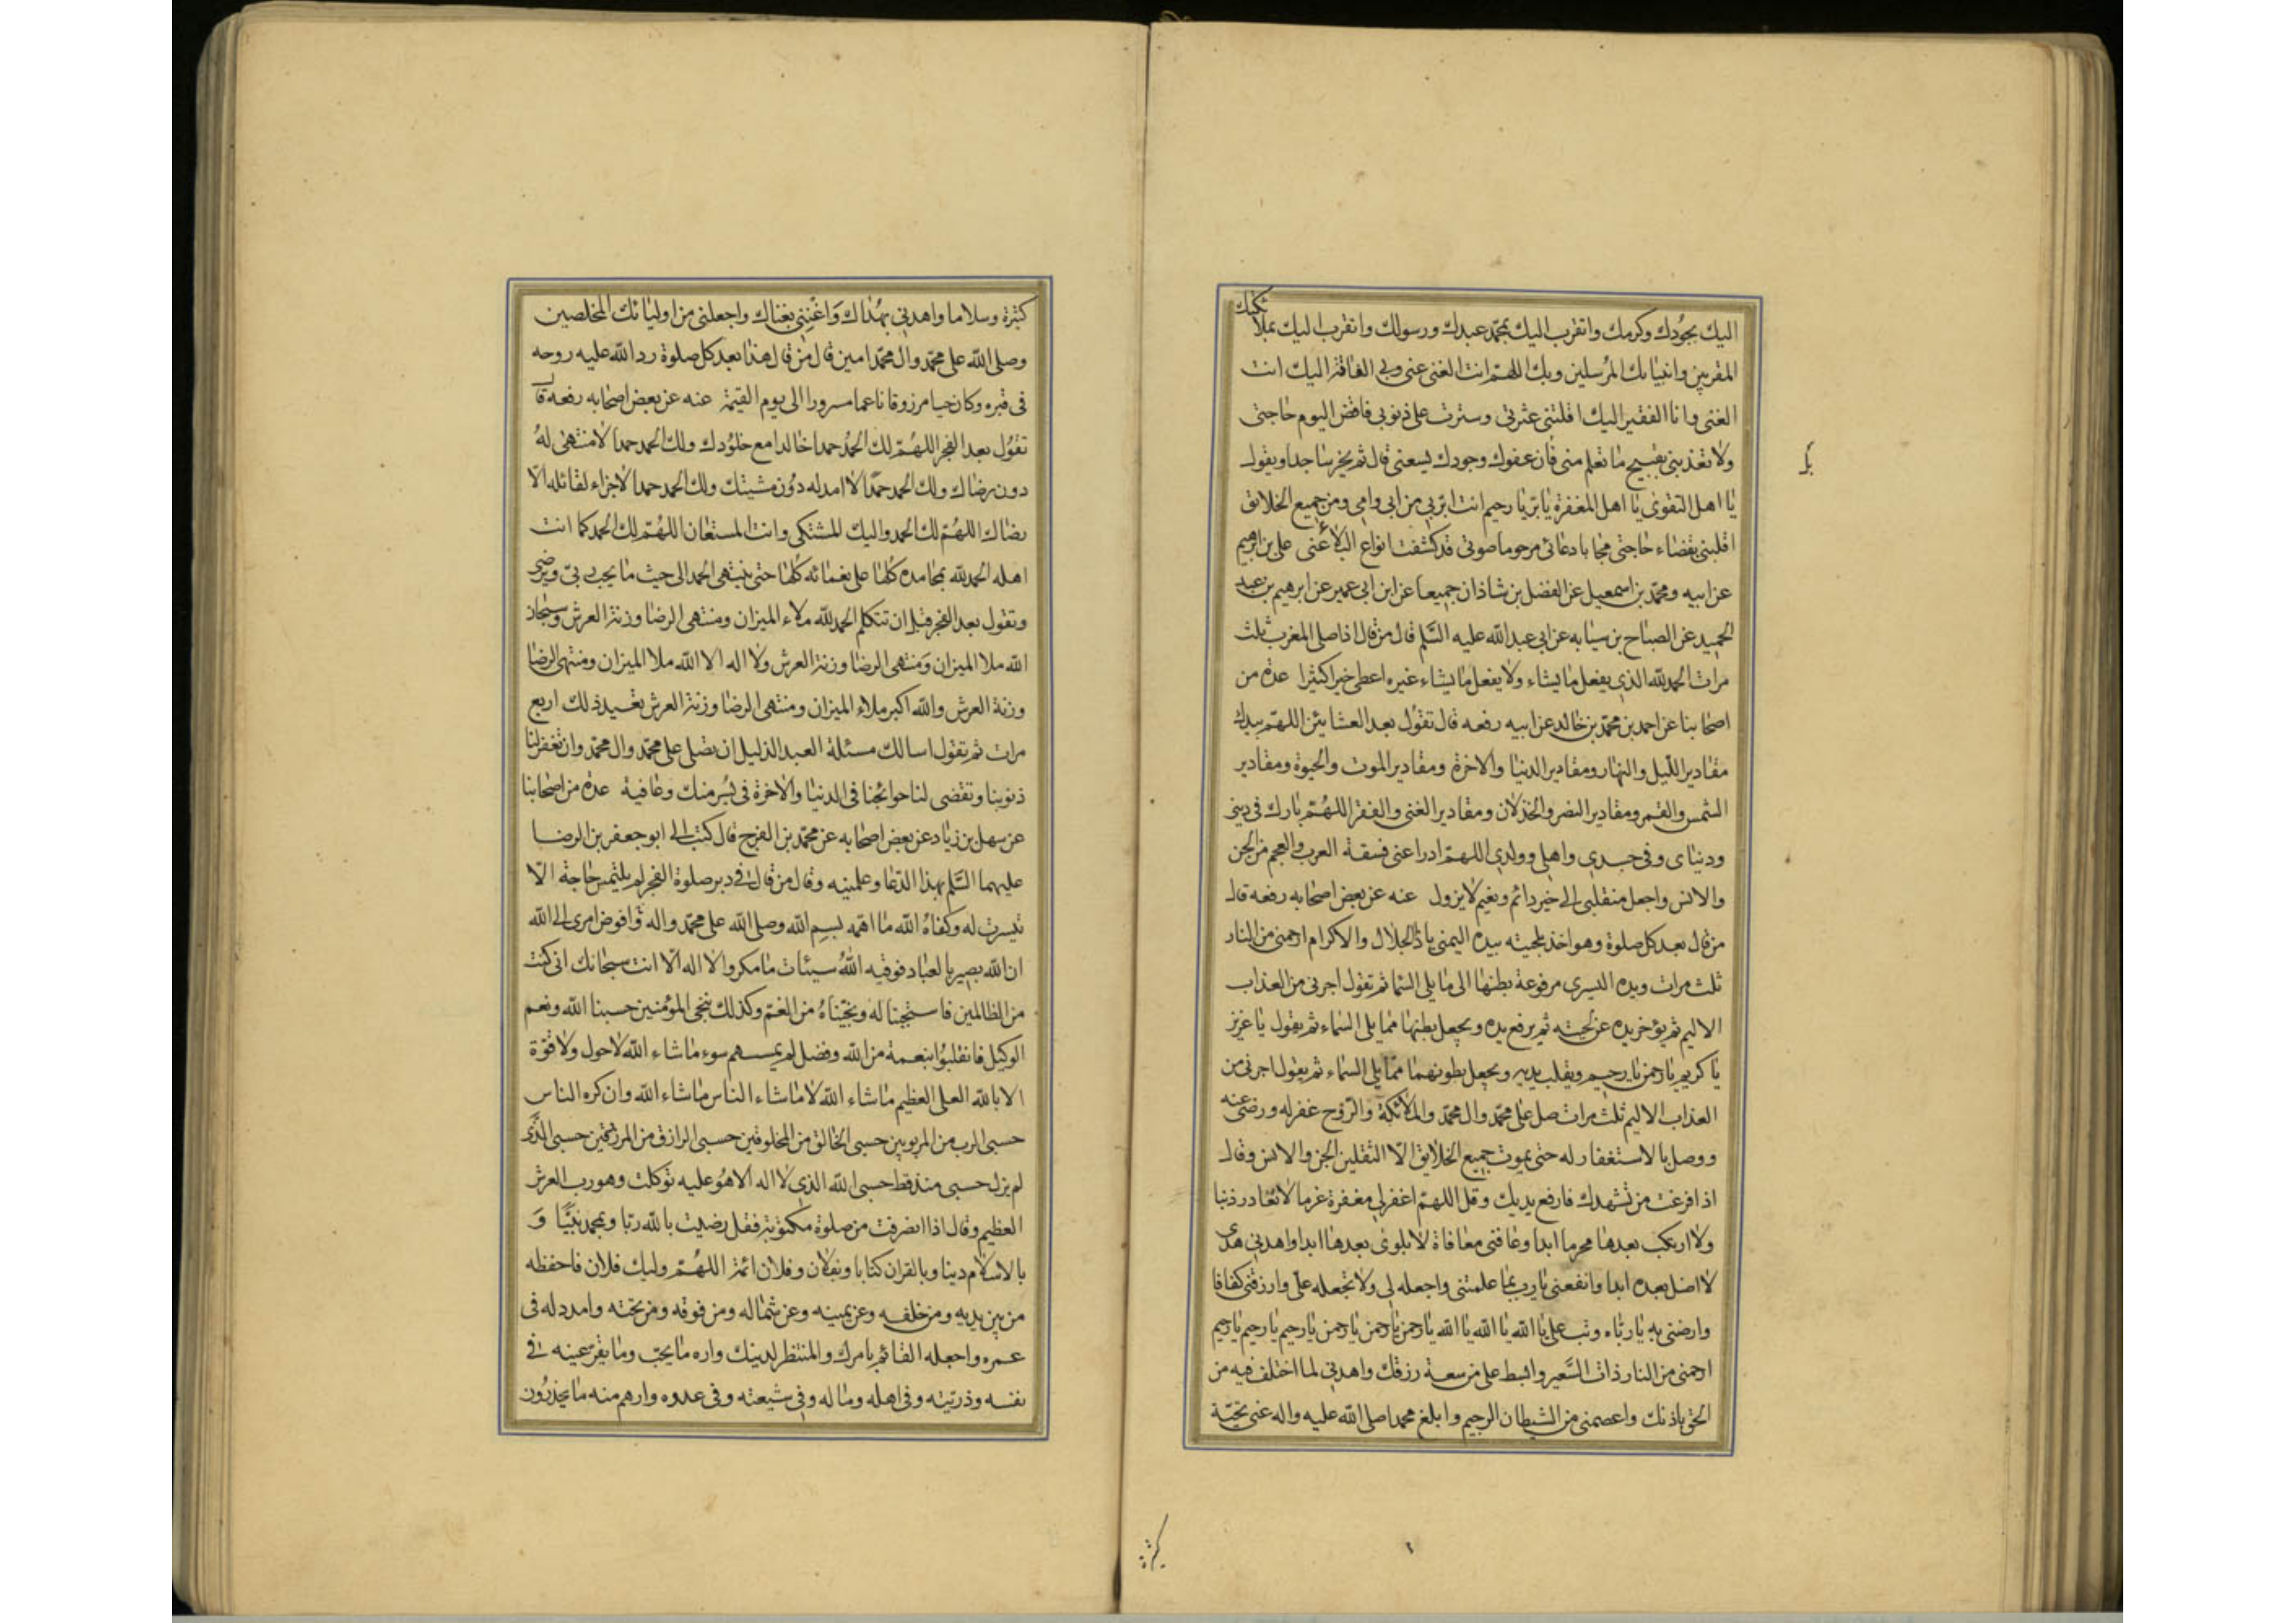 اليك بجودك وكرمك واتقرب اليك بمحمد عبدك ورسولك واتقرب اليك بملائكتك
المقربين وانبيائك المرسلين وبك اللهم انت الغنى عنى وبى الفاقة اليك انت
الغنى وانا الفقير اليك اقلتنى عثرتى وسترت على ذنوبى فاقض اليوم حاجتى
ولا تعذبنى بقبيح ما تعلم منى فان عفوك وجودك يسعنى قال ثم يخر ساجدا ويقول
يا اهل التقوى يا اهل المغفرة يا بر يا رحيم انت ابر بى من ابى وامى ومن جميع الخلايق
اقلبنى بقضاء حاجتى مجابا دعائى مرحوما صوتى قد كشفت انواع البلاء عنى على بن ابرهيم
عن ابيه ومحمد بن اسمعيل عن الفضل بن شاذان جميعا عن ابن ابى عمير عن ابرهيم بن عبد
الحميد عن الصباح بن سيابه عن ابى عبد الله عليه السلم قال من قال اذا صلى المغرب ثلث
مرات الحمد لله الذى يفعل ما يشاء ولا يفعل ما يشاء غيره اعطى خيرا كثيرا عدة من
اصحابنا عن احمد بن محمد بن خالد عن ابيه رفعه قال تقول بعد العشائين اللهم بيدك
مقادير الليل والنهار ومقادير الدنيا والاخرة ومقادير الموت والحيوة ومقادير
الشمس والقمر ومقادير النصر والخذلان ومقادير الغنى والفقر اللهم بارك فى دينى
ودنياى وفى جسدى واهلى وولدى اللهم ادرا عنى فسقة العرب والعجم من الجن
والانس واجعل منقلبى الى خير دائم ونعيم لا يزول عنه عن بعض اصحابه رفعه قال
من قال بعد كل صلوة وهو اخذ بلحيته بيده اليمنى يا ذا الجلال والاكرام ارحمنى من النار
ثلث مرات ويده اليسرى مرفوعة بطنها الى ما يلى السما ثم تقول اجرنى من العذاب
الاليم ثم يؤخر يده عن لحيته ثم يرفع يده ويجعل بطنها مما يلى السماء ثم يقول يا عزيز
يا كريم يا رحمن يا رحيم ويقلب يديه ويجعل بطونهما مما يلى السماء ثم يقول اجرنى من
العذاب الاليم ثلث مرات صل على محمد وال محمد والملائكة والروح غفر له ورضى عنه
ووصل بالاستغفار له حتى يموت جميع الخلايق الا الثقلين الجن والانس وقال
اذا فرغت من تشهدك فارفع يديك وقل اللهم اغفر لى مغفرة عزما لا تغادر ذنبا
ولا ارتكب بعدها محرما ابدا وعافنى معافاة لا بلوى بعدها ابدا واهدنى هدى
لا اضل بعده ابدا وانفعنى يا رب بما علمتنى واجعله لى ولا تجعله على وارزقنى كفافا
وارضنى به يا رباه وتب على يا الله يا الله يا الله يا رحمن يا رحمن يا رحمن يا رحيم يا رحيم يا رحيم
ارحمنى من النار ذات السعير وابسط على من سعة رزقك واهدنى لما اختلف فيه من
الحق باذنك واعصمنى من الشيطان الرجيم وابلغ محمدا صلى الله عليه واله عنى تحية
كثيرة وسلاما واهدنى بهداك واغننى بغناك واجعلنى من اوليائك المخلصين
وصلى الله على محمد وال محمد امين قال من قال هذا بعد كل صلوة رد الله عليه روحه
فى قبره وكان حيا مرزوقا ناعما مسرورا الى يوم القيمة عنه عن بعض اصحابه رفعه قال
تقول بعد الفجر اللهم لك الحمد حمدا خالدا مع خلودك ولك الحمد حمدا لا منتهى له
دون رضاك ولك الحمد حمدا لا امد له دون مشيتك ولك الحمد حمدا لا جزاء لقائله الا
رضاك اللهم لك الحمد واليك المشتكى وانت المستعان اللهم لك الحمد كما انت
اهله الحمد لله بمحامده كلها على نعمائه كلها حتى ينتهى الحمد الى حيث ما يحب ربى ويرضى
وتقول بعد الفجر قبل ان تتكلم الحمد لله ملاء الميزان ومنتهى الرضا وزنة العرش وسبحان
الله ملا الميزان ومنتهى الرضا وزنة العرش ولا اله الا الله ملا الميزان ومنتهى الرضا
وزنة العرش والله اكبر ملاء الميزان ومنتهى الرضا وزنة العرش تعيد ذلك اربع
مرات ثم تقول اسالك مسئلة العبد الذليل ان تصلى على محمد وال محمد وان تغفر لنا
ذنوبنا وتقضى لنا حوائجنا فى الدنيا والاخرة فى يسر منك وعافية عدة من اصحابنا
عن سهل بن زياد عن بعض اصحابه عن محمد بن الفرج قال كتب الى ابو جعفر بن الرضا
عليهما السلم بهذا الدعا وعلمنيه وقال من قال فى دبر صلوة الفجر لم يلتمس حاجة الا
تيسرت له وكفاه الله ما اهمه بسم الله وصلى الله على محمد واله وافوض امرى الى الله
ان الله بصير بالعباد فوقيه الله سيئات ما مكروا لا اله الا انت سبحانك انى كنت
من الظالمين فاستجبنا له ونجيناه من الغم وكذلك ننجى المؤمنين حسبنا الله ونعم
الوكيل فانقلبوا بنعمة من الله وفضل لم يمسسهم سوء ما شاء الله لا حول ولا قوة
الا بالله العلى العظيم ما شاء الله لا ما شاء الناس ما شاء الله وان كره الناس
حسبى الرب من المربوبين حسبى الخالق من المخلوقين حسبى الرازق من المرزوقين حسبى الذى
لم يزل حسبى منذ قط حسبى الله الذى لا اله الا هو عليه توكلت وهو رب العرش
العظيم وقال اذا انصرفت من صلوة مكتوبة فقل رضيت بالله ربا وبمحمد نبيا و
بالاسلام دينا وبالقران كتابا وبفلان وفلان ائمة اللهم وليك فلان فاحفظه
من بين يديه ومن خلفه وعن يمينه وعن شماله ومن فوقه ومن تحته وامدد له فى
عمره واجعله القائم بامرك والمنتظر لدينك واره ما يحب وما يقر عينه فى
نفسه وذريته وفى اهله وماله وفى شيعته وفى عدوه وارهم منه ما يحذرون
كثيرة